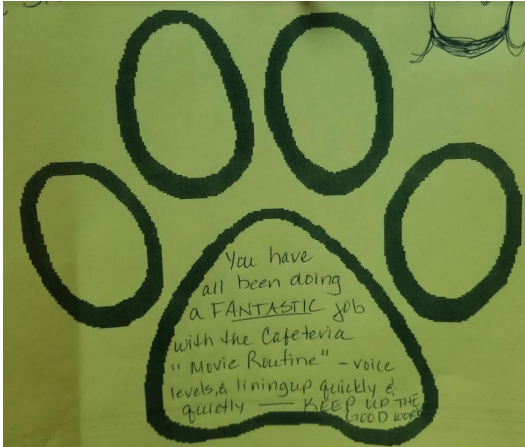 You have
all been doing
a FANTASTIC job
with the Cafeteria
"Movie Routine" - voice
levels, & lining up quickly &
quietly — KEEP UP THE
GOOD WORK